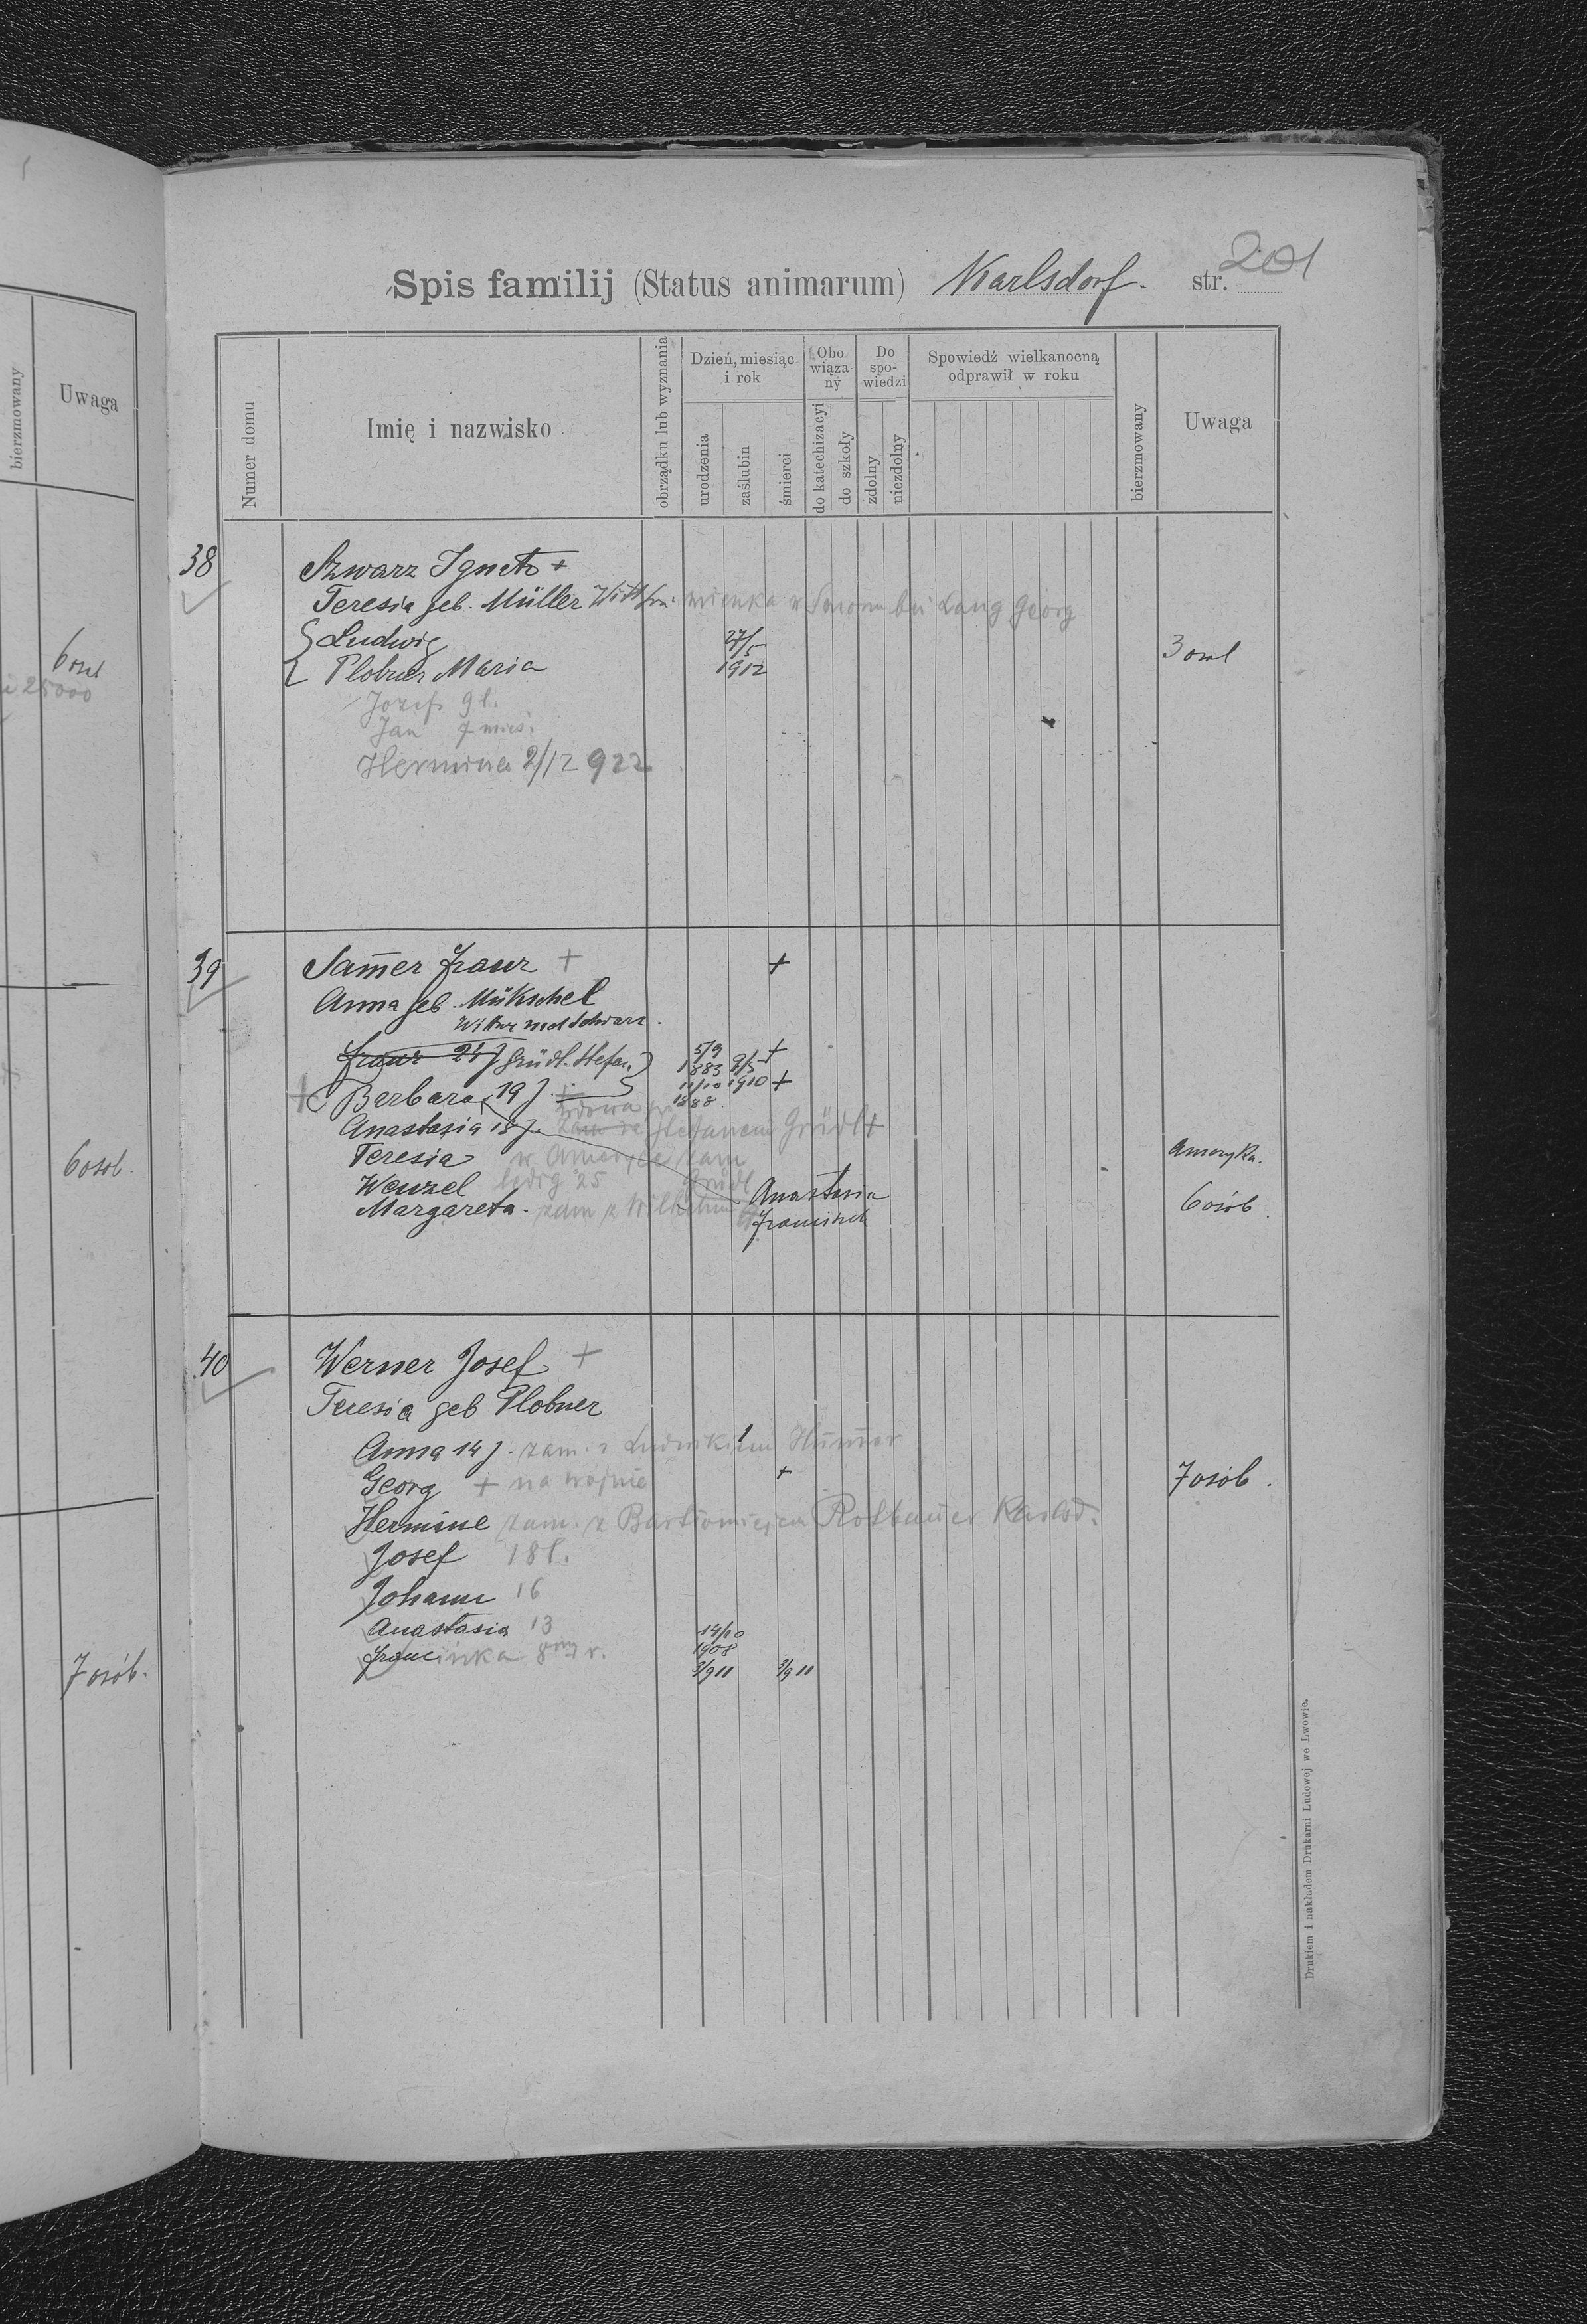 Spis familij (Status animarum) Karlsdorf. str. 201
Numer domu
Imię i nazwisko
obrządku lub wyznania
Dzień, miesiąc i rok
urodzenia
zaślubin
śmierci
Obowiązany
do katechizacyi
do szkoły
Do spowiedzi
zdolny
niezdolny
Spowiedź wielkanocną odprawił w roku
bierzmowany
Uwaga
38
Szwarz Ignatz +
Teresia geb. Müller bei Lang Georg
Ludwig 27/5
Plobner Maria 1912
3 osol
Jozef 9 l.
Jan 7 mies.
Hermina 2/12 922
39
Samer Franz + +
Anna geb. Mükschel
Franz 24 J Grüdl. Stefan 5/9 1883 9/5 +
Barbara 19 J. + 11/10 1888 1910 +
wdowa
Anastasia 18 J. zam ze Stefanem Grüdl +
Teresia w Ameryce zam Ameryka.
Wenzel ledig 25 Grüdl Anastasia
Margareta. zam z Wilhelmem
6 osób
40
Werner Josef +
Teresia geb Plobner
Anna 14 J. zam. z Ludwikiem Hümer
Georg + na wojnie +
7 osób.
Hermine zam. z Bartłomiejem Rotbauer Karlsd.
Josef 18 l.
Johann 16
Anastasia 13 14/10 1908
Francinka 8 r. 3/911 3/911
Drukiem i nakładem Drukarni Ludowej we Lwowie.
bierzmowany
Uwaga
6 osol
25000
6 osob.
7 osób.